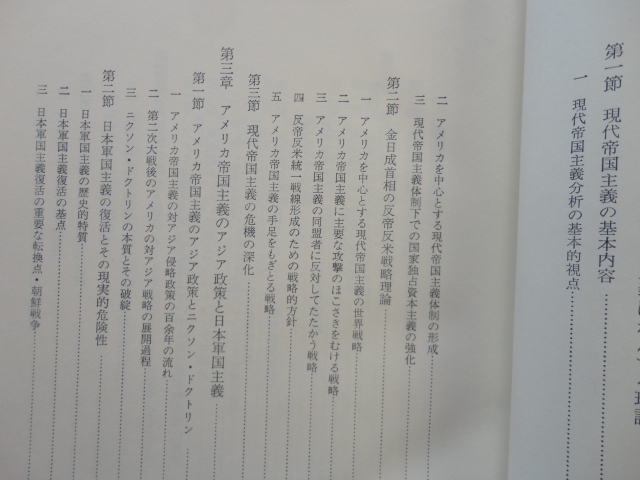 第一節　現代帝国主義の基本内容
一　現代帝国主義分析の基本的視点
二　アメリカを中心とする現代帝国主義体制の形成
三　現代帝国主義体制下での国家独占資本主義の強化
第二節　金日成首相の反帝反米戦略理論
一　アメリカを中心とする現代帝国主義の世界戦略
二　アメリカ帝国主義に主要な攻撃のほこさきをむける戦略
三　アメリカ帝国主義の同盟者に反対してたたかう戦略
四　反帝反米統一戦線形成のための戦略的方針
五　アメリカ帝国主義の手足をもぎとる戦略
第三節　現代帝国主義の危機の深化
第三章　アメリカ帝国主義のアジア政策と日本軍国主義
第一節　アメリカ帝国主義のアジア政策とニクソン・ドクトリン
一　アメリカ帝国主義の対アジア侵略政策の百余年の流れ
二　第二次大戦後のアメリカの対アジア戦略の展開過程
三　ニクソン・ドクトリンの本質とその破綻
第二節　日本軍国主義の復活とその現実的危険性
一　日本軍国主義の歴史的特質
二　日本軍国主義復活の基点
三　日本軍国主義復活の重要な転換点・朝鮮戦争